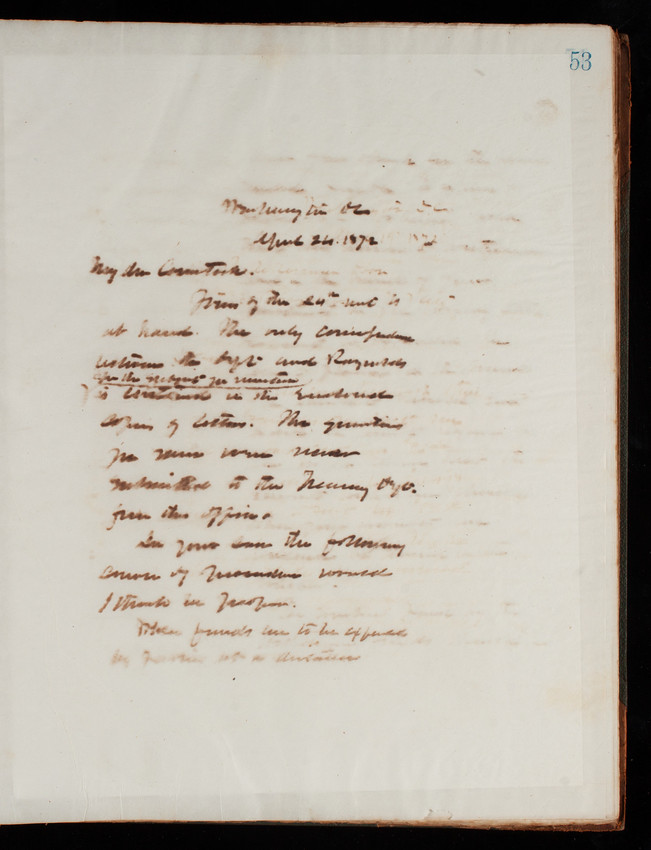 53
Washington DC
April 24. 1872
My dear Comstock.
Yours of the 20th inst is
at hand. The only correspondence
between the Dept and Raynolds
on the subject you mention
is contained in the enclosed
copies of letters. The questions
you were never
submitted to the Treasury Dept.
from this office.
In your case the following
course of procedure would
I think be proper.
When funds are to be expended
by at a distance